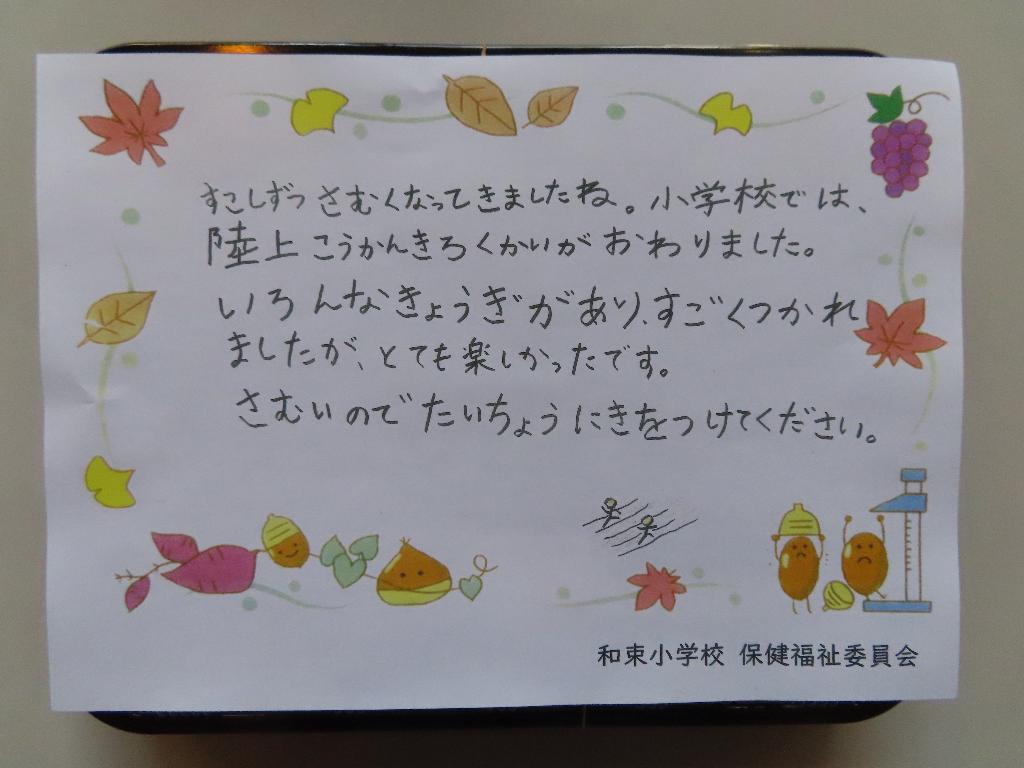 すこしずつさむくなってきましたね。小学校では、
陸上こうかんきろくかいがおわりました。
いろんなきょうぎがあり、すごくつかれ
ましたが、とても楽しかったです。
さむいのでたいちょうにきをつけてください。
和束小学校 保健福祉委員会